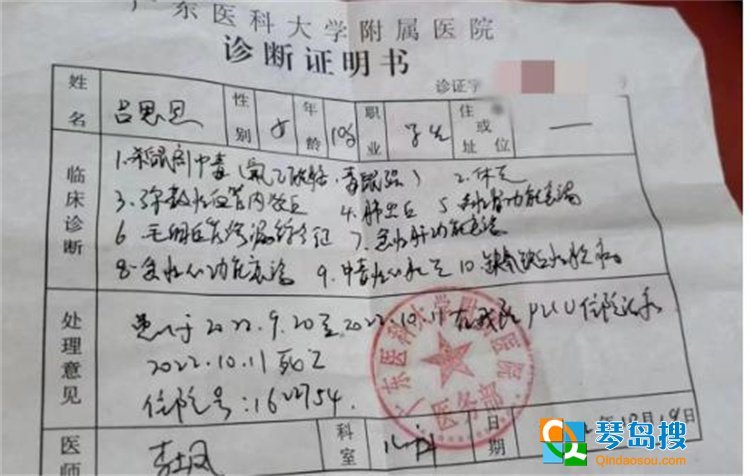 广东医科大学附属医院
诊断证明书
诊证字
姓名 吕思恩 性别 女 年龄 10岁 职业 学生 住址或单位 —
临床诊断
1.杀鼠剂中毒(氟乙酰胺、毒鼠强) 2.休克
3.弥散性血管内凝血 4.肺出血 5.急性肾功能衰竭
6.毛细血管渗漏综合征 7.急性肝功能衰竭
8.急性心功能衰竭 9.中毒性心肌炎 10.缺氧缺血性脑病
处理意见
患儿于2022.9.20至2022.10.11在我院PICU住院
2022.10.11死亡
住院号:1622754.
医师 科室 儿科 日期 年10月19日
广东医科大学附属医院
医务部
琴岛搜
Qindaosou.com